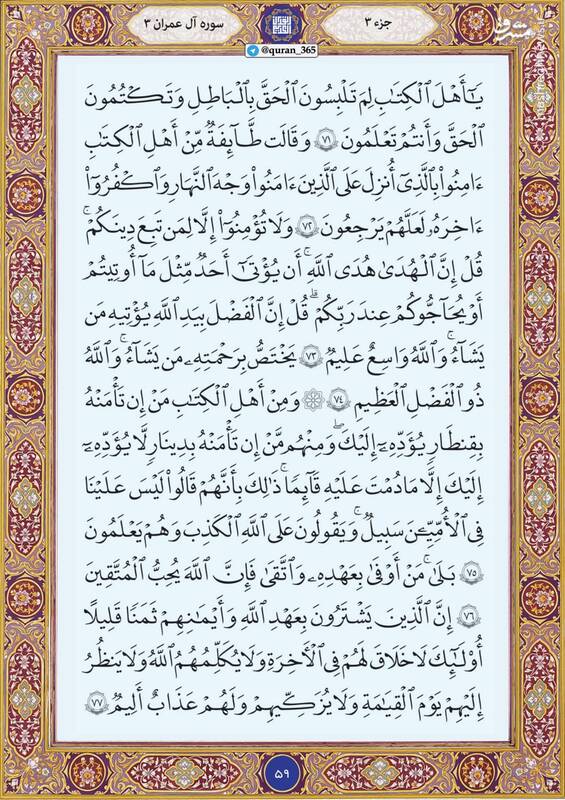 جزء ۳
سوره آل عمران ۳
@quran_365
مشرق
mashreghnews.ir
يَـٰٓأَهۡلَ ٱلۡكِتَٰبِ لِمَ تَلۡبِسُونَ ٱلۡحَقَّ بِٱلۡبَٰطِلِ وَتَكۡتُمُونَ
ٱلۡحَقَّ وَأَنتُمۡ تَعۡلَمُونَ ۷۱ وَقَالَت طَّآئِفَةٞ مِّنۡ أَهۡلِ ٱلۡكِتَٰبِ
ءَامِنُواْ بِٱلَّذِيٓ أُنزِلَ عَلَى ٱلَّذِينَ ءَامَنُواْ وَجۡهَ ٱلنَّهَارِ وَٱكۡفُرُوٓاْ
ءَاخِرَهُۥ لَعَلَّهُمۡ يَرۡجِعُونَ ۷۲ وَلَا تُؤۡمِنُوٓاْ إِلَّا لِمَن تَبِعَ دِينَكُمۡ
قُلۡ إِنَّ ٱلۡهُدَىٰ هُدَى ٱللَّهِ أَن يُؤۡتَىٰٓ أَحَدٞ مِّثۡلَ مَآ أُوتِيتُمۡ
أَوۡ يُحَآجُّوكُمۡ عِندَ رَبِّكُمۡۗ قُلۡ إِنَّ ٱلۡفَضۡلَ بِيَدِ ٱللَّهِ يُؤۡتِيهِ مَن
يَشَآءُۗ وَٱللَّهُ وَٰسِعٌ عَلِيمٞ ۷۳ يَخۡتَصُّ بِرَحۡمَتِهِۦ مَن يَشَآءُۗ وَٱللَّهُ
ذُو ٱلۡفَضۡلِ ٱلۡعَظِيمِ ۷۴ ۞ وَمِنۡ أَهۡلِ ٱلۡكِتَٰبِ مَنۡ إِن تَأۡمَنۡهُ
بِقِنطَارٖ يُؤَدِّهِۦٓ إِلَيۡكَ وَمِنۡهُم مَّنۡ إِن تَأۡمَنۡهُ بِدِينَارٖ لَّا يُؤَدِّهِۦٓ
إِلَيۡكَ إِلَّا مَا دُمۡتَ عَلَيۡهِ قَآئِمٗاۗ ذَٰلِكَ بِأَنَّهُمۡ قَالُواْ لَيۡسَ عَلَيۡنَا
فِي ٱلۡأُمِّيِّـۧنَ سَبِيلٞ وَيَقُولُونَ عَلَى ٱللَّهِ ٱلۡكَذِبَ وَهُمۡ يَعۡلَمُونَ
۷۵ بَلَىٰۚ مَنۡ أَوۡفَىٰ بِعَهۡدِهِۦ وَٱتَّقَىٰ فَإِنَّ ٱللَّهَ يُحِبُّ ٱلۡمُتَّقِينَ
۷۶ إِنَّ ٱلَّذِينَ يَشۡتَرُونَ بِعَهۡدِ ٱللَّهِ وَأَيۡمَٰنِهِمۡ ثَمَنٗا قَلِيلًا
أُوْلَـٰٓئِكَ لَا خَلَٰقَ لَهُمۡ فِي ٱلۡأٓخِرَةِ وَلَا يُكَلِّمُهُمُ ٱللَّهُ وَلَا يَنظُرُ
إِلَيۡهِمۡ يَوۡمَ ٱلۡقِيَٰمَةِ وَلَا يُزَكِّيهِمۡ وَلَهُمۡ عَذَابٌ أَلِيمٞ ۷۷
۵۹